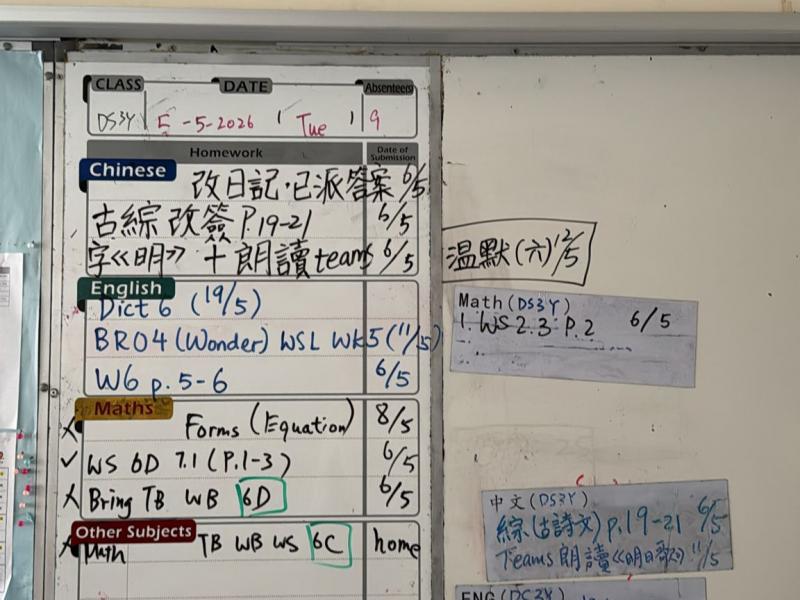 CLASS DATE Absentees
DS3Y 5-5-2026 ( Tue ) 9
Homework Date of Submission
Chinese
改日記·已派答案 6/5
古綜改簽 P.19-21 6/5
字《明》+朗讀teams 6/5
English
Dict 6 (19/5)
BRO4 (Wonder) WSL WK5 (11/5)
W6 p.5-6 6/5
Maths
Forms (Equation) 8/5
WS 6D 7.1 (P.1-3) 6/5
Bring TB WB 6D 6/5
Other Subjects
Math TB WB WS 6C home
温默(六) 12/5
Math (DS3Y)
1. WS 2.3 P.2 6/5
中文 (DS3Y)
綜(古詩文) p.19-21 6/5
Teams 朗讀《明日歌》 11/5
ENG (DS3Y)